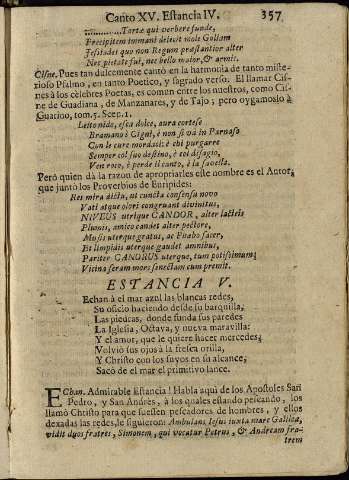 Canto XV. Estancia IV. 357
............Tortæ qui verbere fundæ,
Præcipitem immani deiecit mole
Iessiades quo non Regum præstantior alter
Nec pietate fuit, nec bello maior, & armis.
Cisne. Pues tan dulcemente cantò en la harmonia de tanto miste-
rioso Psalmo, en tanto Poetico, y sagrado verso. El llamar Cis-
nes à los celebres Poetas, es comun entre los nuestros, como Cis-
ne de Guadiana, de Manzanares, y de Tajo; pero oygamoslo à
Guarino, tom. 5. Scep. 1.
Lieto nido, esca dolce, aura cortese
Bramano i Cigni, è non si và in Parnaso
Con le cure mordaci: è chi purgare
Semper col suo destino, è col disagio,
Vien roco, è perde il canto, è la favella.
Pero quien dà la razon de apropriarles este nombre es el Autor,
que juntò los Proverbios de Euripides:
Res mira dictu, ni cuncta consensu novo
Vati atque olori congruant divinitus,
NIVEUS utrique CANDOR, alter lacteis
Plumis, amico candet alter pectore,
Musis uterque gratus, ac Phœbo sacer,
Et limpidis uterque gaudet amnibus,
Pariter CANORUS uterque, tum potissimum,
Vicina seram mors senectam cum premit.
ESTANCIA V.
Echan à el mar azul las blancas redes,
Su oficio haciendo desde su barquilla,
Las piedras, donde funda sus paredes
La Iglesia, Octava, y nueva maravilla:
Y el amor, que le quiere hacer mercedes,
Volviò sus ojos à la fresca orilla,
Y Christo con los suyos en su alcance,
Sacò de el mar el primitivo lance.
EChan. Admirable Estancia! Habla aqui de los Apostoles San
Pedro, y San Andrès, à los quales estando pescando, los
llamò Christo para que fuessen pescadores de hombres, y ellos
dexadas las redes, le siguieron: Ambulans Iesus iuxta mare Galilææ,
vidit duos fratres, Simonem, qui vocatur Petrus, & Andream fra-
trem